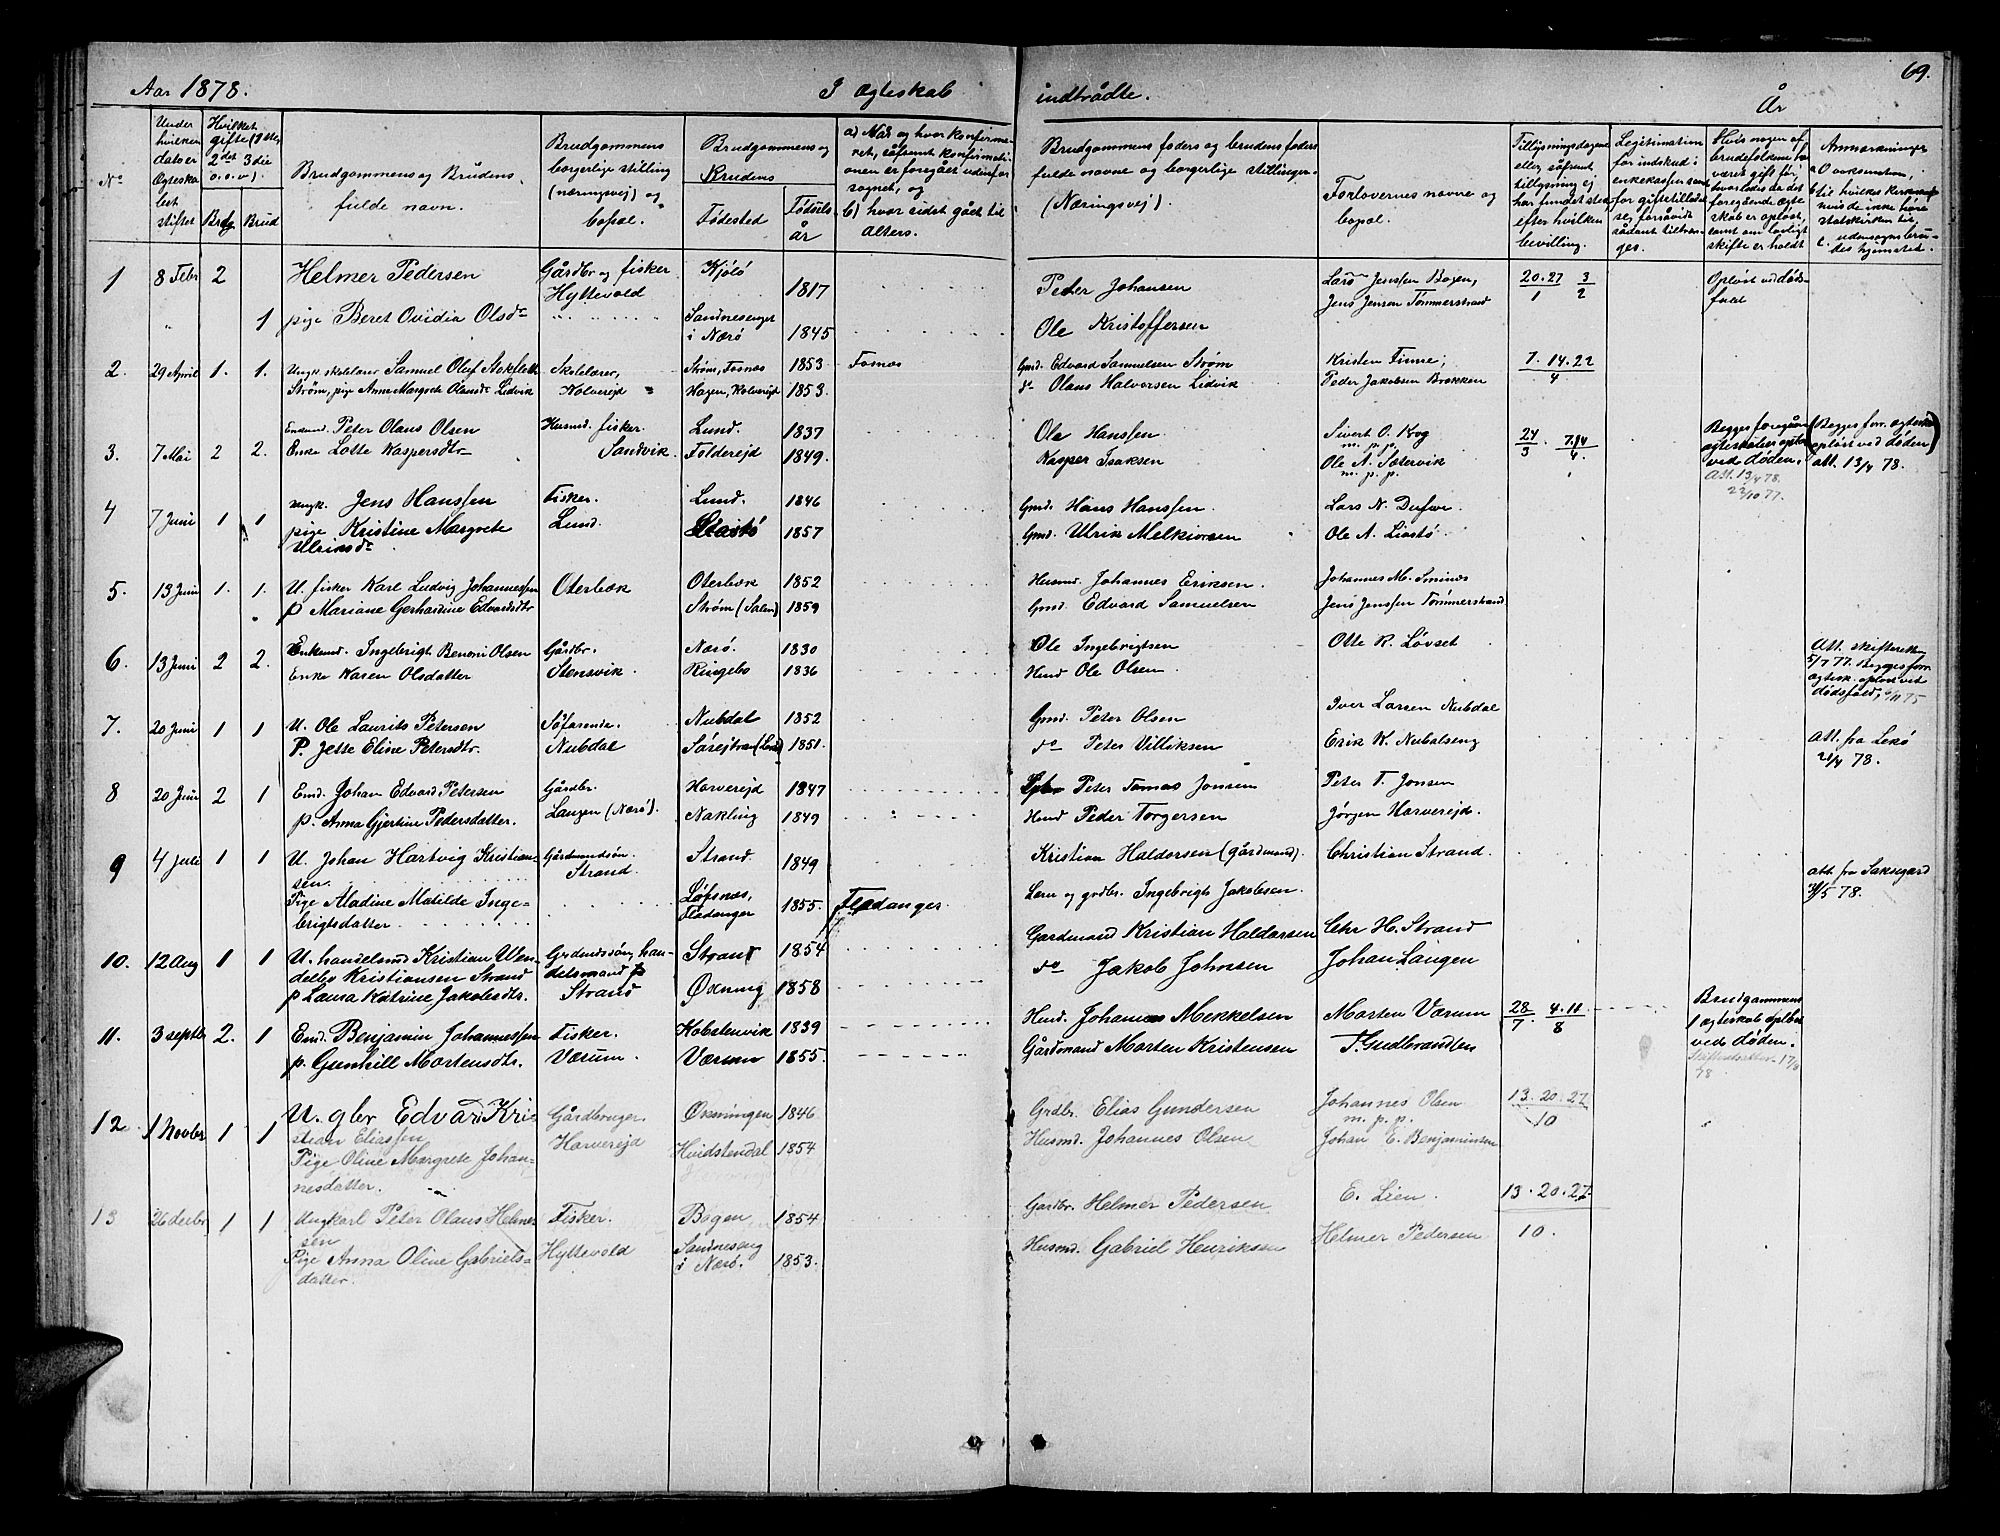 Aar 1878. I ægteskab indtrådte. År 69.
No
Under hvilken dato er Ægteskabet stiftet
Hvilket gifte (1ste, 2det 3die o.s.v).
Brdg. Brud
Brudgommens og Brudens fulde navn.
Brudgommens borgerlige stilling (næringsvej) og bopæl.
Brudgommens og Brudens
Fødested
Fødsels år
a) Når og hvor konfirmeret, såfremt konfirmationen er foregået udenfor sognet, og
b) hvor sidst gået til Alters.
Brudgommens faders og brudens faders fulde navne og borgerlige stillinger (Næringsvej).
Forlovernes navne og bopæl.
Tillysningsdagene eller såfremt tillysning ej har fundet sted efter hvilken bevilling.
Legitimation for indskud i enkekassen samt for giftetilladelse, forsåvidt sådant tiltrænges.
Hvis nogen af brudefolkene har været gift før, hvorledes da det foregående ægteskab er opløst, samt om lovligt skifte er holdt
Anmærkninger
1 8 Febr 2 Helmer Pedersen Gårdbr og fisker Kjølø 1817 Peter Johansen Lars Jenssen Bogen, 20. 27 3 Opløst ved døds-
Hyttevold Jens Jensen Tømmerstrand 1 2 fald
" 1 pige Beret Ovidia Olsdr Sandnesenget i Nærø 1845 Ole Kristoffersen
2. 29 April 1. 1. Ungk skolelærer Samuel Oluf Skolelærer, Strøm, Fosnæs 1853 Fosnæs Gmd. Edvard Samuelsen Strøm Kristen Finne; 7. 14. 22
Strøm, pige Anne Margrete Olausdr Lidvik Kolverejd Hagen, Kolverejd 1853. do Olaus Halvorsen Lidvik Peder Jakobsen Brækken 4
3. 7 Mai 2 2. Enkemd. Peter Olaus Olsen Husmd. fisker. Lund. 1837 Ole Hanssen. Sivert O. Krog 24 7.14 Begges foregående (Begges forr. ægteskab
m. p. p. ægteskaber opløst opløst ved døden)
Enke Lotte Kaspersdtr Sandvik. Folderejd 1849. Kasper Isaksen Ole A. Sætervik 3 4. ved døden. att. 13/4 78.
m. p. p. Att. 13/4 78.
22/10 77.
4 7 Juni 1 1 ungk. Jens Hanssen Fisker. Lund. 1846 Gmd. Hans Hanssen. Lars N.
pige Kristine Margrete Lund. 1857 Gmd. Ulrik Melkiorsen Ole A. Liastø
Ulriksdr
5. 13 Juni 1. 1. U. fisker Karl Ludvig Johannessen Oterbæk Oterbæk 1852 Husmd. Johannes Eriksen. Johannes M. Sminæs
p Mariane Gerhardine Edvardsdtr Strøm (Salen) 1859 Gmd. Edvard Samuelsen Jens Jenssen Tømmerstrand
6. 13 Juni 2 2. Enkemd. Ingebrigt Benoni Olsen Gårdbr. Nærø. 1830 Ole Ingebrigtsen Otte R. Løvset Att. skifteretten
Enke Karen Olsdatter Stensvik. Ringebo 1836 Husmd Ole Olsen. 5/7 77. Begges forr.
ægtesk. opløst ved
dødsfald,
7. 20 Juni 1 1 U. Ole Laurits Petersen Søfarende. Nubdal 1852 Gmd. Peter Olsen Iver Larsen Nubdal
P. Jette Eline Petersdtr. Nubdal 1851. do Peter Villiksen Erik K. Nubalseng Att. fra Lekø
21/4 78.
8 20 Juni 2 1 Emd. Johan Edvard Petersen Gårdbr. Harverejd 1847 Peter Tomas Jonsen Peter T. Jonsen
p. Anna Gjertine Pedersdatter. Langen (Nærø). Nakling 1849 Husmd Peder Torgersen Jørgen Harverejd.
9 4 Juli 1 1 U. Johan Hartvig Kristian- Gårdmandsøn. Strand. 1849 Kristian Haldorsen (gårdmand). Christian Strand.
sen. Strand. att. fra
Pige Aladine Matilde Inge- Løfsnæs, Fladanger 1855. Fladanger Lærer og grdbr. Ingebrigt Jakobsen. 78.
brigtsdatter.
10. 12 Aug 1 1 U. handelsmd Kristian Wen- Grdmdssøn, han- Strand 1854 Gardmand Kristian Haldorsen Chr H. Strand
delbo Kristiansen Strand delsmand på
p Laura Katrine Jakobsdtr. Strand Øxning 1858 do Jakob Johnsen Johan Langen
11. 3 septbr 2. 1 Emd. Benjamin Johannessen Fisker. Kobstenvik 1839 Husmd. Johannes Mekkelsen Morten Værum 28 4.11 Brudgommens
p. Gunhild Mortensdtr. Værum. Værum 1855. Gårdmand Morten Kristensen T. Gudbrandsen 7. 8 1 ægteskab opløst
ved døden.
Skifteattest 17/8
78.
12. 1 Novbr 1 1 U. gbr Edvard Kri- Gårdbruger. Øxningen 1846 Grdbr. Elias Gundersen Johannes Olsen 13. 20. 27
stian Eliassen m. p. p. 10
Pige Oline Margrete Johan- Harverejd Hvidstendal 1854 Husmd. Johannes Olsen Johan E. Benjaminsen
nesdatter.
13 26 Decbr 1 1 Ungkarl Peter Olaus Helmer Fisker. Bogen 1854 Gardbr. Helmer Pedersen E. Lien. 13. 20. 27
sen
Pige Anna Oline Gabriels- Hyttevold Sandnesenget i Nærø. 1853. Husmd. Gabriel Henriksen Helmer Pedersen 10.
datter.